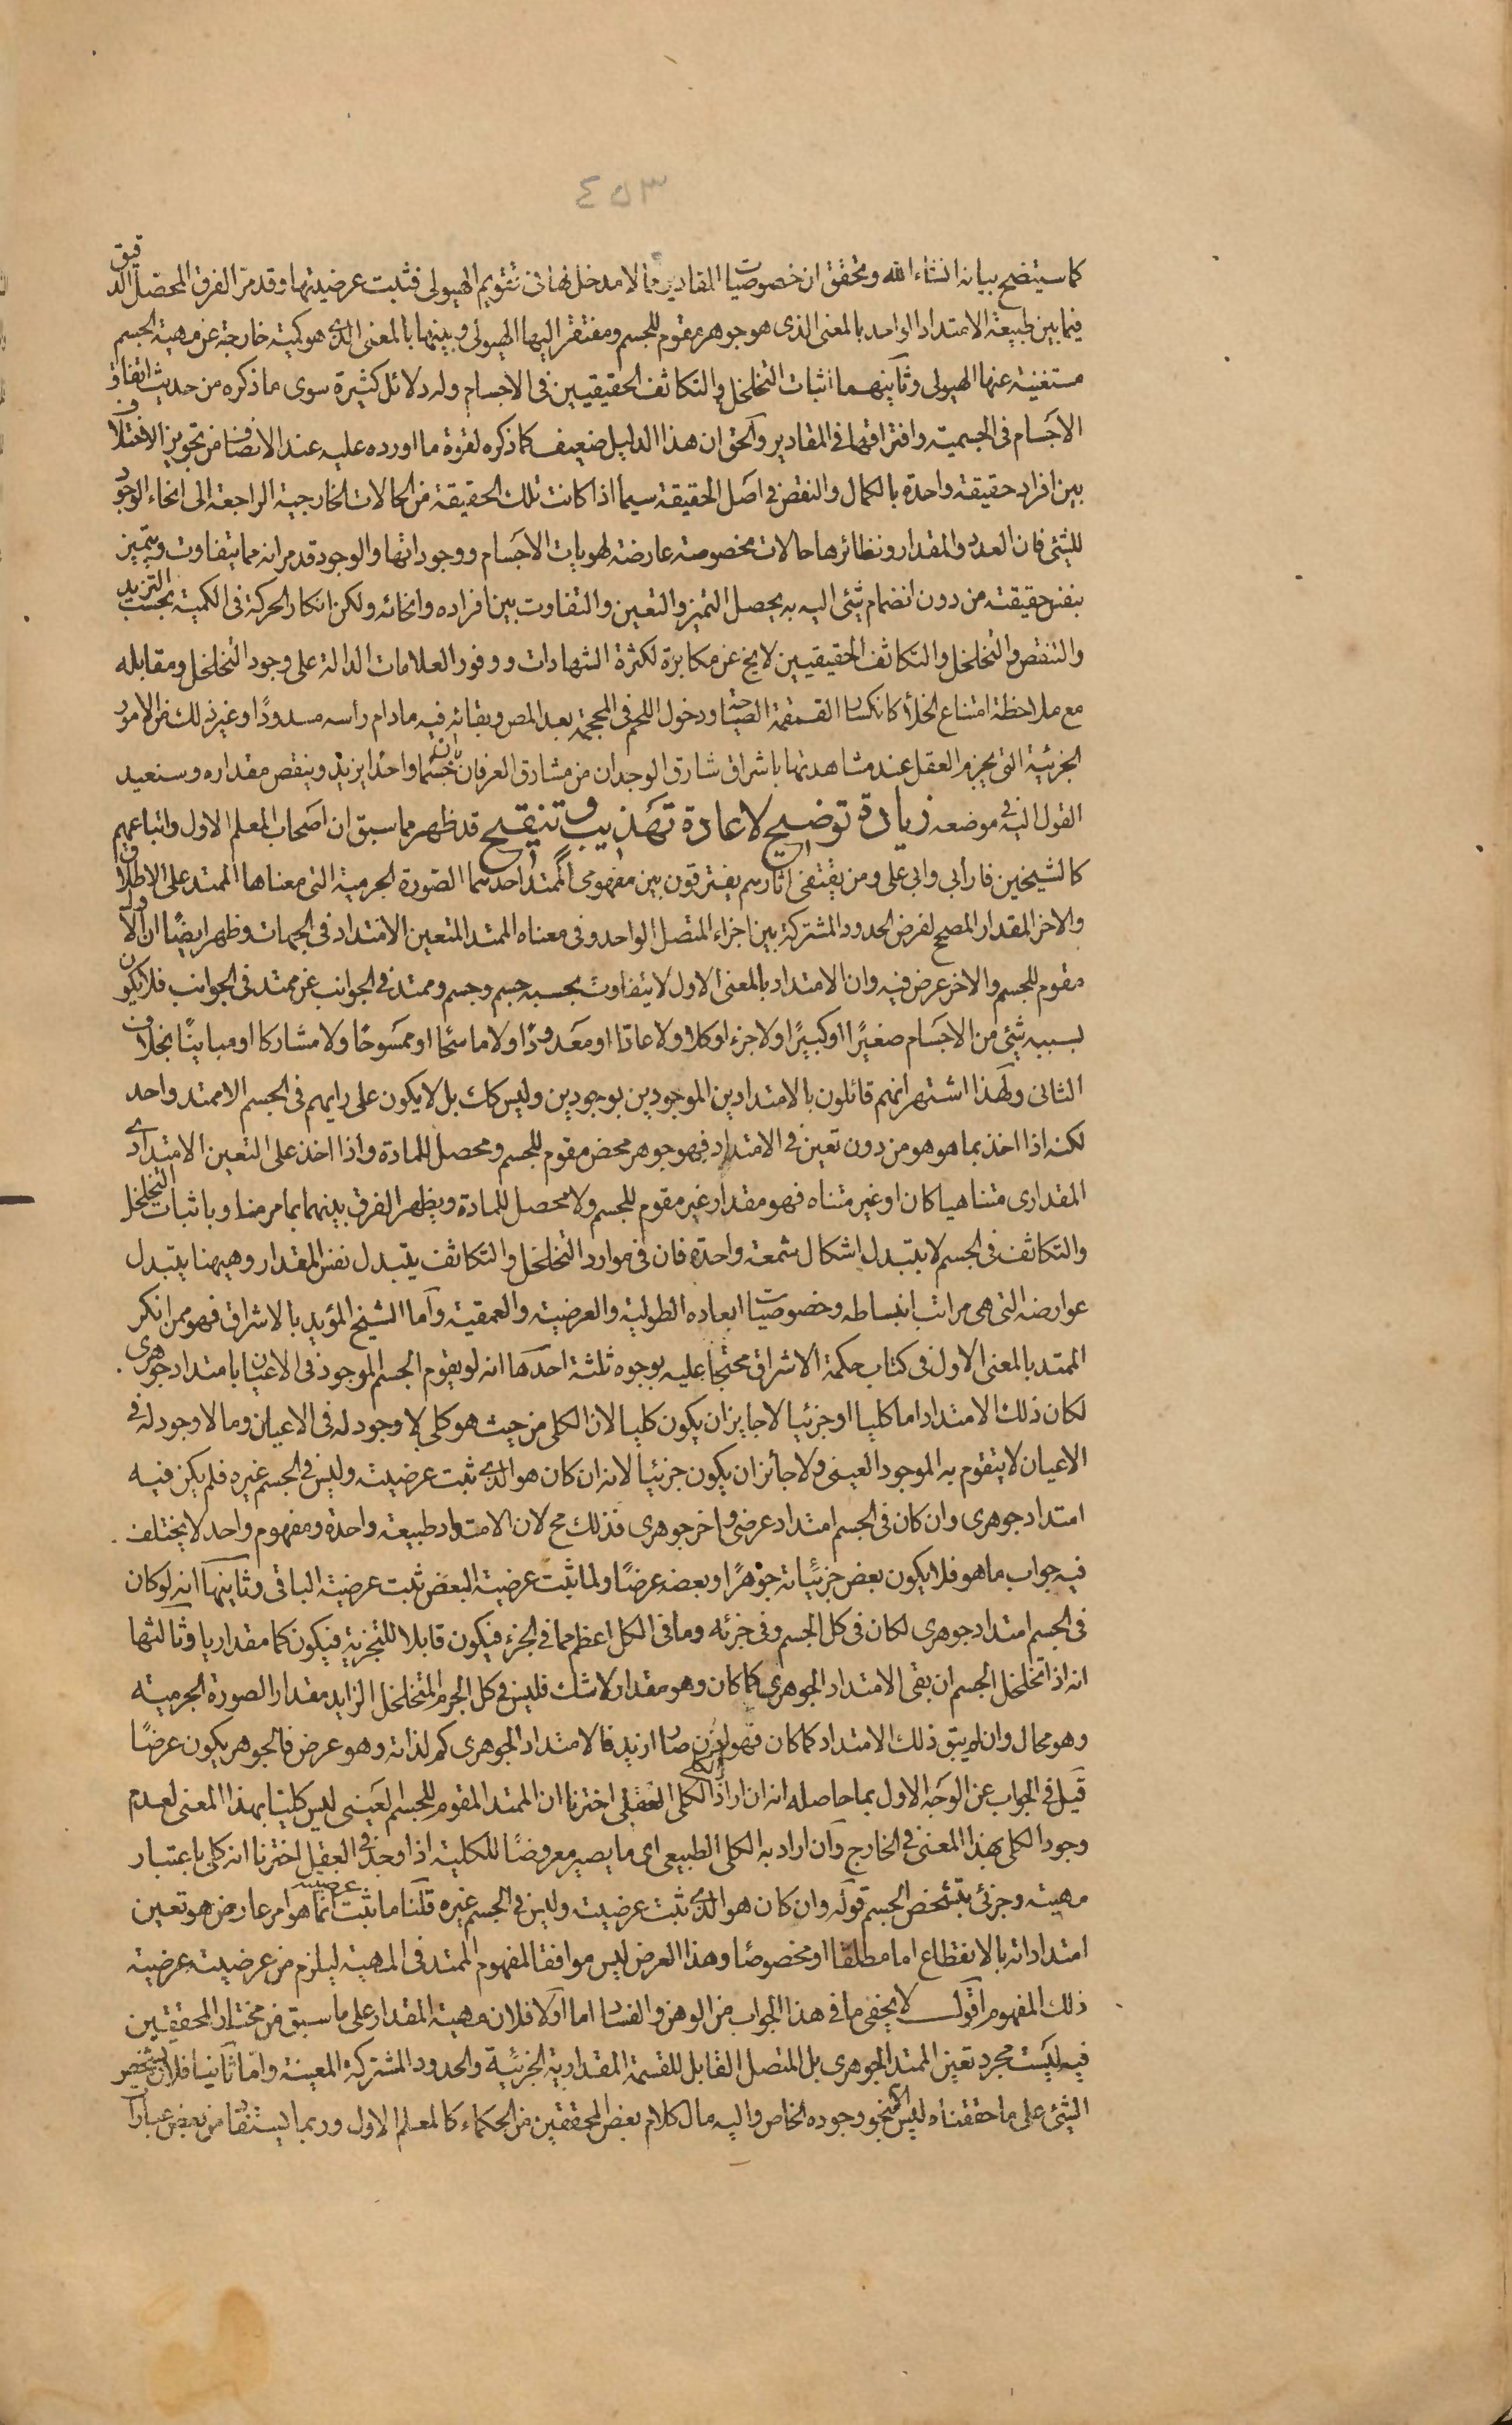 ٤٥٣
كما سيتضح بيانه انشاء الله وتحقق ان خصوصيات المقادير مما لا مدخل لها فى تقويم الهيولى فثبت عرضيتها وقد مر الفرق المحصل الدقيق
فيما بين طبيعة الامتداد الواحد بالمعنى الذى هو جوهر مقوم للجسم ومفتقر اليها الهيولى وبينها بالمعنى الذى هو كمية خارجة عن مهية الجسم
مستغنية عنها الهيولى وثانيهما اثبات التخلخل والتكاثف الحقيقيين فى الاجسام وله دلائل كثيرة سوى ما ذكره من حديث اتفاق
الاجسام فى الجسمية وافتراقها فى المقادير والحق ان هذا الدليل ضعيف كما ذكره لقوة ما اورده عليه عند الانصاف من تجويز الاختلاف
بين افراد حقيقة واحدة بالكمال والنقص فى اصل الحقيقة سيما اذا كانت تلك الحقيقة من الحالات الخارجية الراجعة الى انحاء الوجود
للشئ فان العدد والمقدار ونظائرها حالات مخصوصة عارضة لهويات الاجسام ووجوداتها والوجود قد مر انه مما يتفاوت ويتميز
بنفس حقيقته من دون انضمام شئ اليه به يحصل التميز والتعين والتفاوت بين افراده وانحائه ولكن انكار الحركة فى الكمية بحسب التزيد
والتنقص والتخلخل والتكاثف الحقيقيين لا يخ عن مكابرة لكثرة الشهادات ووفور العلامات الدالة على وجود التخلخل ومقابله
مع ملاحظة امتناع الخلأ كانكسار القمقمة الصياحة ودخول اللحم فى المحجمة بعد المص وبقائه فيه مادام راسه مسدودًا وغير ذلك من الامور
الجزئية التى يجزم العقل عند مشاهدتها باشراق شارق الوجدان من مشارق العرفان بان جسما واحدا يزيد وينقص مقداره وسنعيد
القول اليه فى موضعه زيادة توضيح لاعادة تهذيب وتنقيح قد ظهر مما سبق ان اصحاب المعلم الاول واتباعهم
كالشيخين فارابي وابي على ومن يقتفى اثارهم يفترقون بين مفهومى الممتد احدهما الصورة الجرمية التى معناها الممتد على الاطلاق
والاخر المقدار المصحح لفرض الحدود المشتركة بين اجزاء المتصل الواحد وفى معناه الممتد المتعين الامتداد فى الجهات وظهر ايضًا ان الاول
مقوم للجسم والاخر عرض فيه وان الامتداد بالمعنى الاول لا يتفاوت بحسبه جسم وجسم وممتد فى الجوانب عن ممتد فى الجوانب فلا يكون
بسببه شئ من الاجسام صغيرًا او كبيرًا ولا جزء او كلا ولا عادّا او معدودًا ولا ماسحًا او ممسوحًا ولا مشاركا او مباينًا بخلاف
الثانى ولهذا اشتهر انهم قائلون بالامتدادين الموجودين بوجودين وليس كك بل لا يكون على رايهم فى الجسم الا ممتد واحد
لكنه اذا اخذ بما هو هو من دون تعين فى الامتداد فهو جوهر محض مقوم للجسم ومحصل للمادة واذا اخذ على التعين الامتدادى
المقدارى متناهيا كان او غير متناه فهو مقدار غير مقوم للجسم ولا محصل للمادة ويظهر الفرق بينهما بما مر منا وباثبات التخلخل
والتكاثف فى الجسم لا بتبدل اشكال شمعة واحدة فان فى موارد التخلخل والتكاثف يتبدل نفس المقدار وهيهنا يتبدل
عوارضه التى هى مراتب انبساطه وخصوصيات ابعاده الطولية والعرضية والعمقية واما الشيخ المؤيد بالاشراق فهو ممن انكر
الممتد بالمعنى الاول فى كتاب حكمة الاشراق محتجا عليه بوجوه ثلثة احدها انه لو يقوم الجسم الموجود فى الاعيان بامتداد جوهرى
لكان ذلك الامتداد اما كليا او جزئيا لا جايز ان يكون كليا لان الكلى من حيث هو كلى لا وجود له فى الاعيان وما لا وجود له فى
الاعيان لا يتقوم به الموجود العينى ولا جائز ان يكون جزئيا لانه ان كان هو الذى ثبت عرضيته وليس فى الجسم غيره فلم يكن فيه
امتداد جوهرى وان كان فى الجسم امتداد عرضى واخر جوهرى فذلك مح لان الامتداد طبيعة واحدة ومفهوم واحد لا يختلف
فيه جواب ما هو فلا يكون بعض جزئياته جوهرًا وبعضه عرضًا ولما ثبت عرضية البعض ثبت عرضية الباقى وثانيها انه لو كان
فى الجسم امتداد جوهرى لكان فى كل الجسم وفى جزئه وما فى الكل اعظم مما فى الجزء فيكون قابلا للتجزية فيكون كما مقداريا وثالثها
انه اذا تخلخل الجسم ان بقى الامتداد الجوهرى كما كان وهو مقدار لاشك فليس فى كل الجرم المتخلخل الزايد مقدار الصورة الجرمية
وهو محال وان لم يبق ذلك الامتداد كما كان فهو اذن صار ازيد فالامتداد الجوهرى كم لذاته وهو عرض فالجوهر يكون عرضًا
قيل فى الجواب عن الوجه الاول بما حاصله انه ان اراد بالكلى الكلى العقلى اخترنا ان الممتد المقوم للجسم العينى ليس كليا بهذا المعنى لعدم
وجود الكلى بهذا المعنى فى الخارج وان اراد به الكلى الطبيعى اى ما يصير معروضًا للكلية اذا وجد فى العقل اخترنا انه كلى باعتبار
مهيته وجزئى بتشخص الجسم قوله وان كان هو الذى ثبت عرضيته وليس فى الجسم غيره قلنا ما ثبت عرضيته انما هو امر عارض هو تعين
امتداداته بالانقطاع اما مطلقا او مخصوصًا وهذا العرض ليس موافقا لمفهوم الممتد فى المهية ليلزم من عرضيته عرضية
ذلك المفهوم اقول لا يخفى ما فى هذا الجواب من الوهن والفساد اما اولا فلان مهية المقدار على ما سبق من مختار المحققين
فيه ليست مجرد تعين الممتد الجوهرى بل المتصل القابل للقسمة المقدارية الجزئية والحدود المشتركة المعينة واما ثانيا فلان تشخص
الشئ على ما حققناه ليس الا نحو وجوده الخاص واليه مال كلام بعض المحققين من الحكماء كالمعلم الاول وربما يستفاد من بعض عبارات